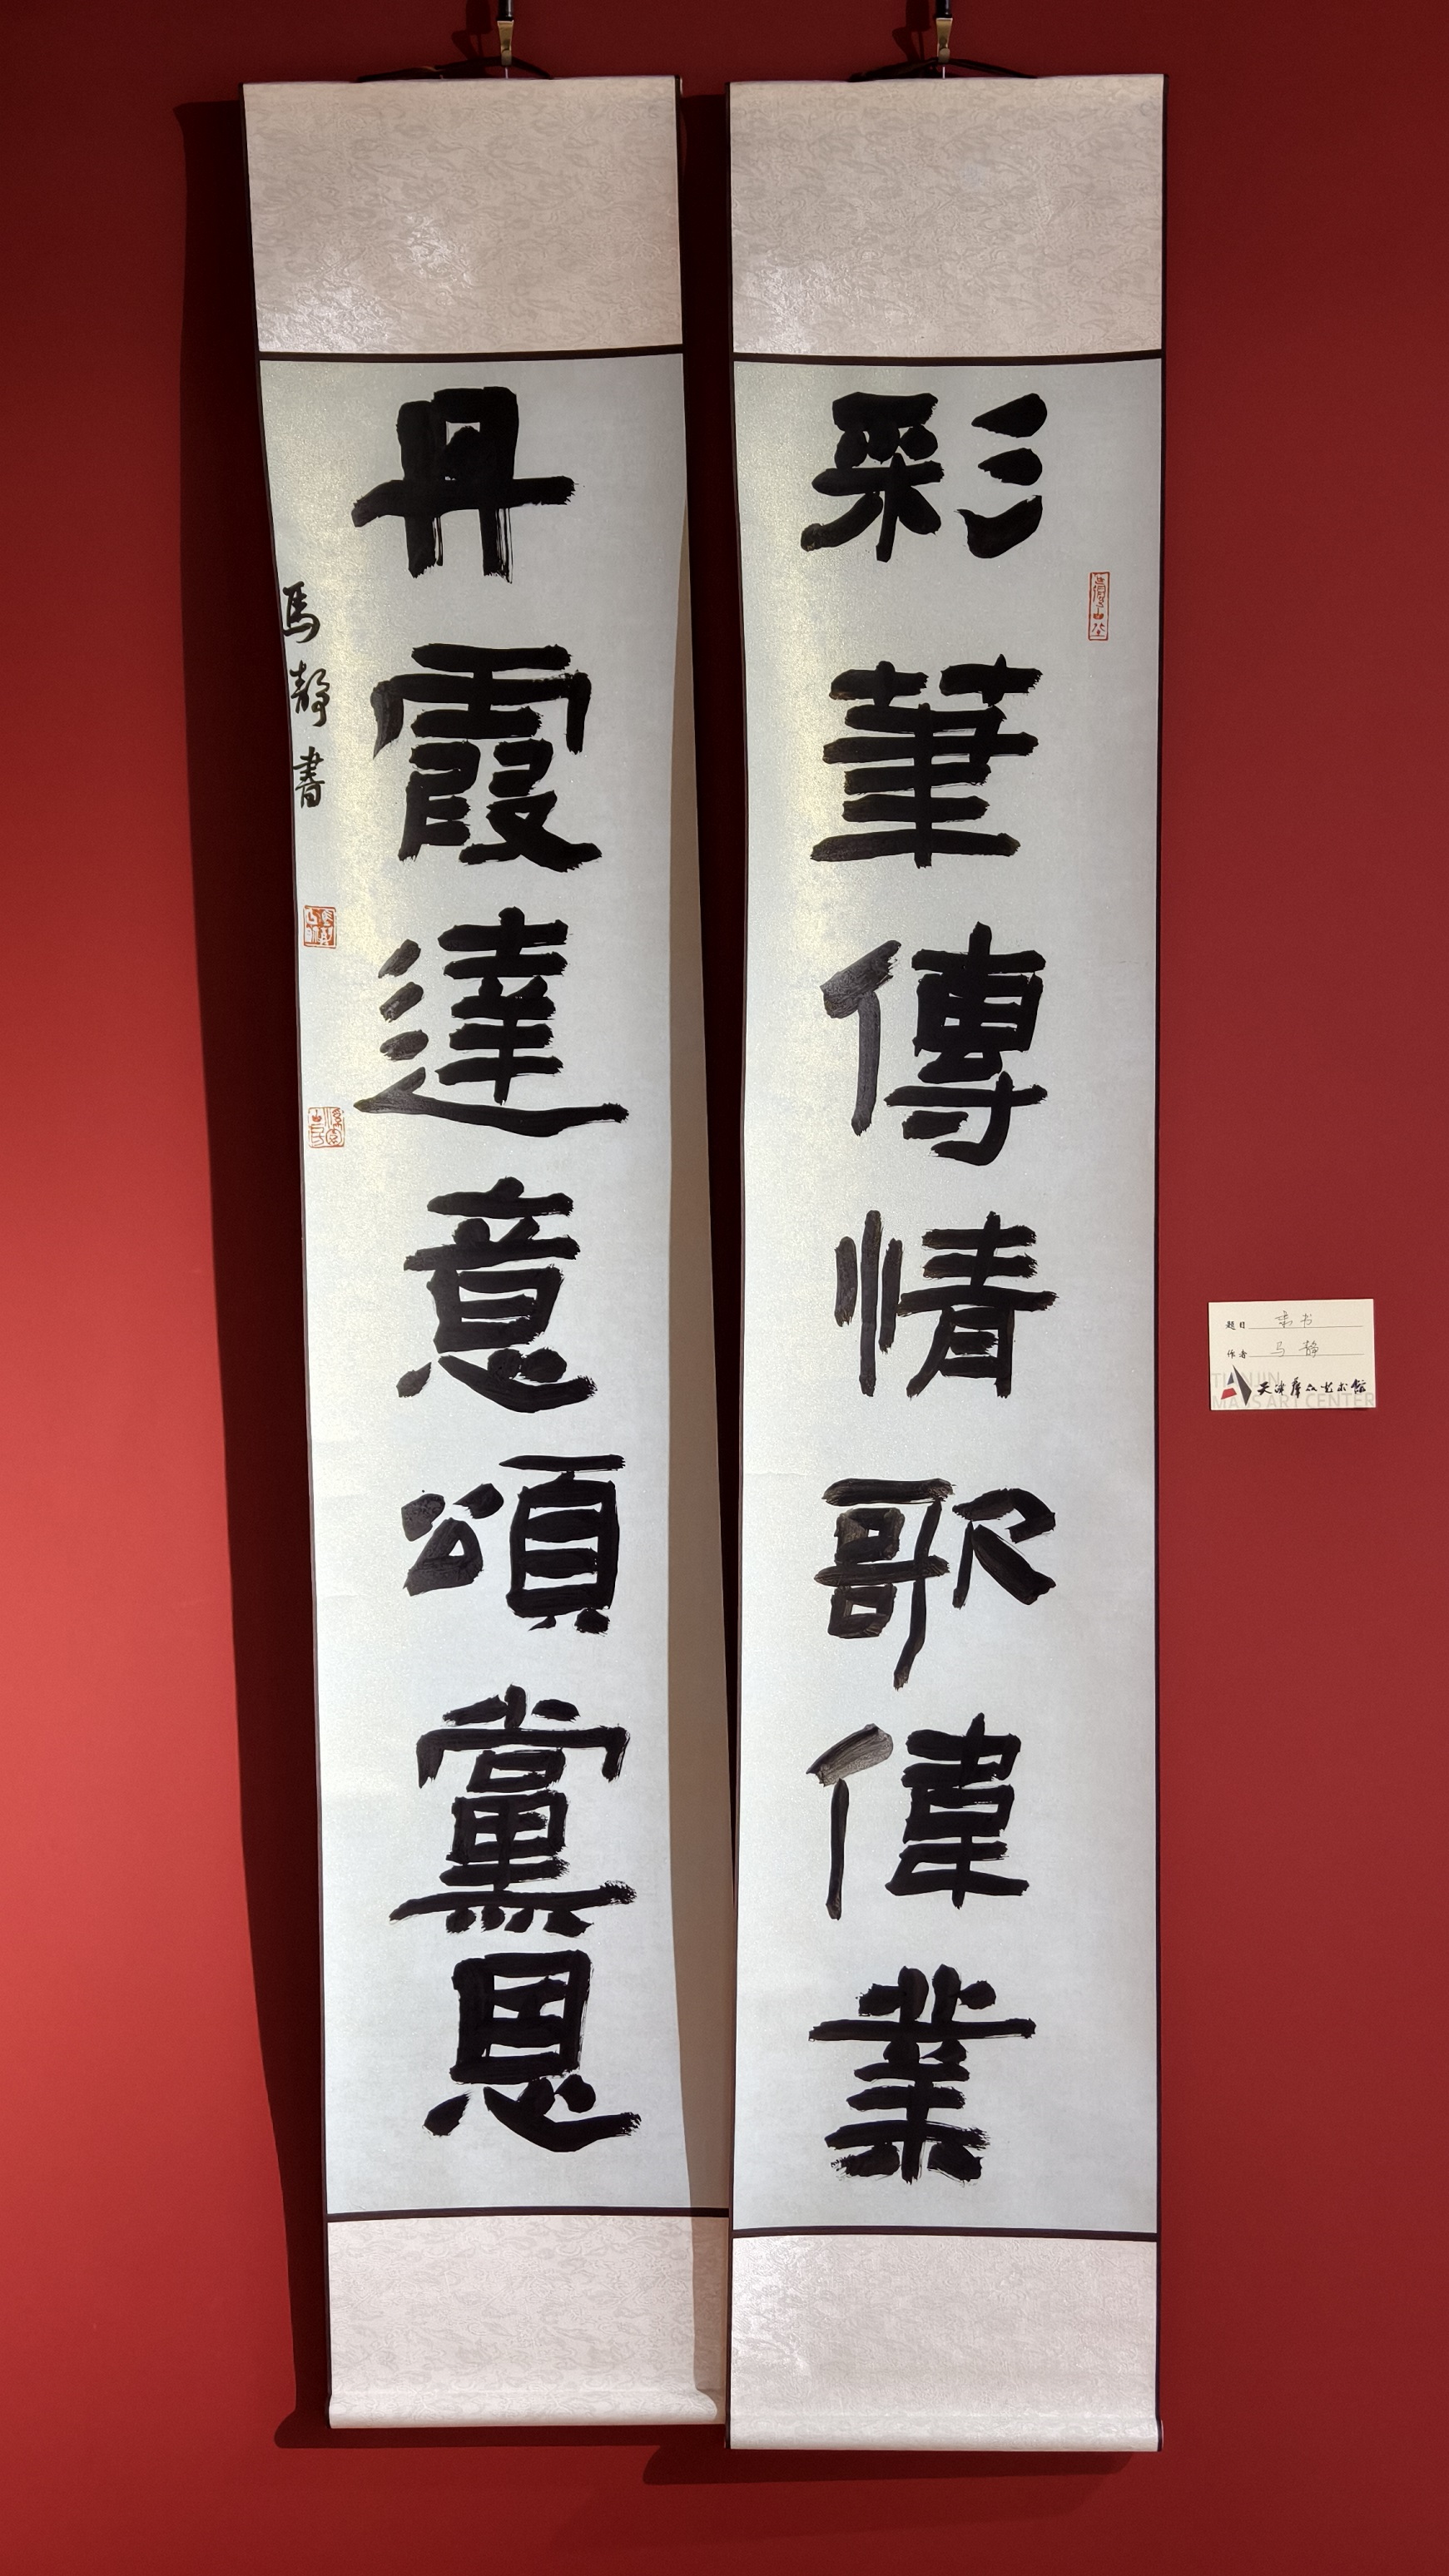 彩筆傳情歌偉業
丹霞達意頌黨恩
馬靜書
题目 隶书
作者 马静
TIANJIN
MASS ART CENTER
天津群众艺术馆